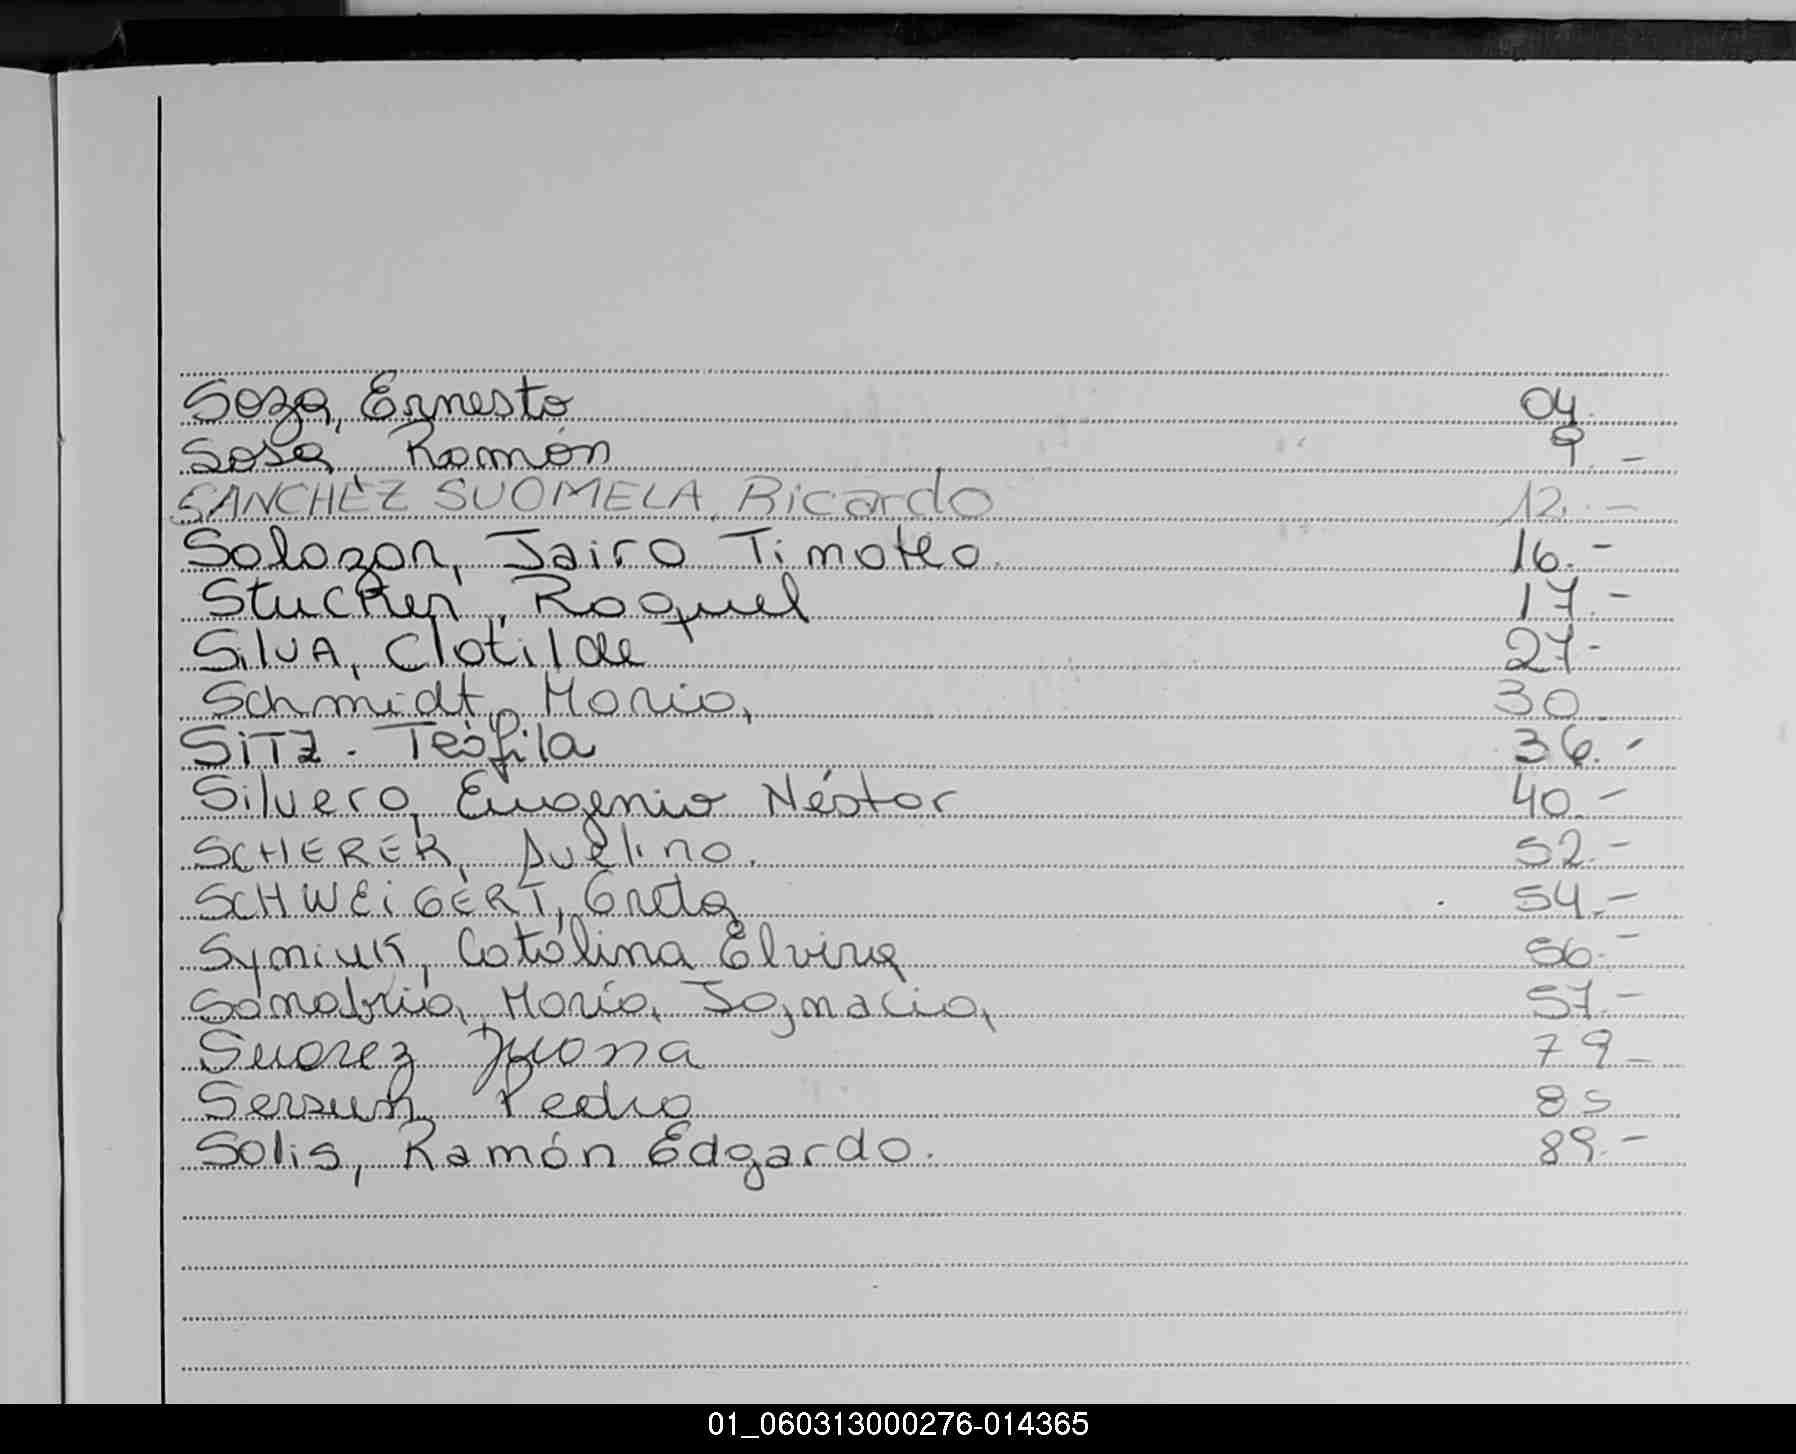 Soza, Ernesto 04.
Sosa, Ramón 9. -
SANCHEZ SUOMELA, Ricardo 12. -
Solozon, Jairo Timoteo. 16. -
Stucker, Raquel 17. -
SilvA, Clotilde 27 -
Schmidt, Maria, 30
SiTz. Teófila 36. -
Silvero, Eugenio Néstor 40. -
SCHERER, Avelino. 52. -
SCHWEiGERT, Greta 54. -
Symiuk, Catalina Elvira 56. -
Sanabria, María, Ignacia, 57. -
Suarez Juana 79 -
Pedro 85
Solis, Ramón Edgardo. 89. -
01_060313000276-014365